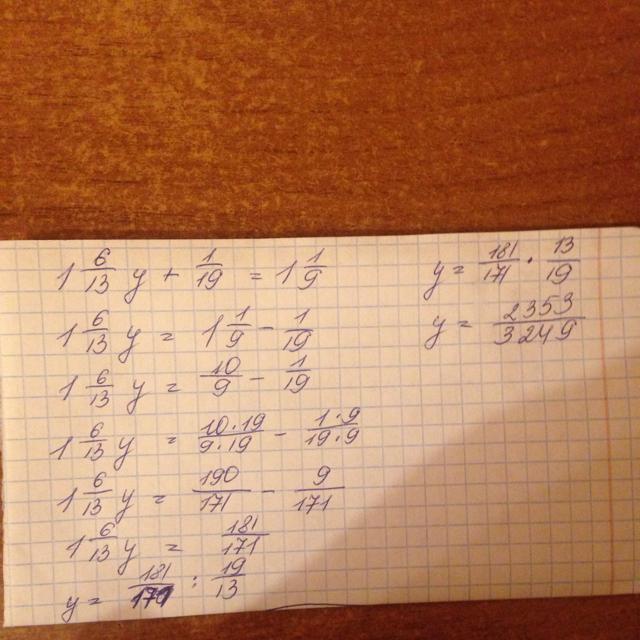 1 6/13 y + 1/19 = 1 1/9
1 6/13 y = 1 1/9 - 1/19
1 6/13 y = 10/9 - 1/19
1 6/13 y = 10·19/9·19 - 1·9/19·9
1 6/13 y = 190/171 - 9/171
1 6/13 y = 181/171
y = 181/171 : 19/13
y = 181/171 · 13/19
y = 2353/3249